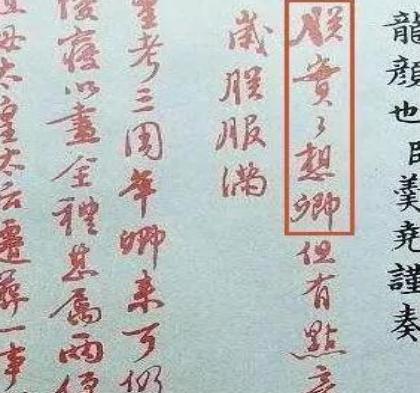 龍顏也臣羹堯謹奏
朕實々想卿但有點
歲朕服滿
聖考三周年卿來可
陵寢以盡全禮甚屬兩便
母太皇太后遷葬一事